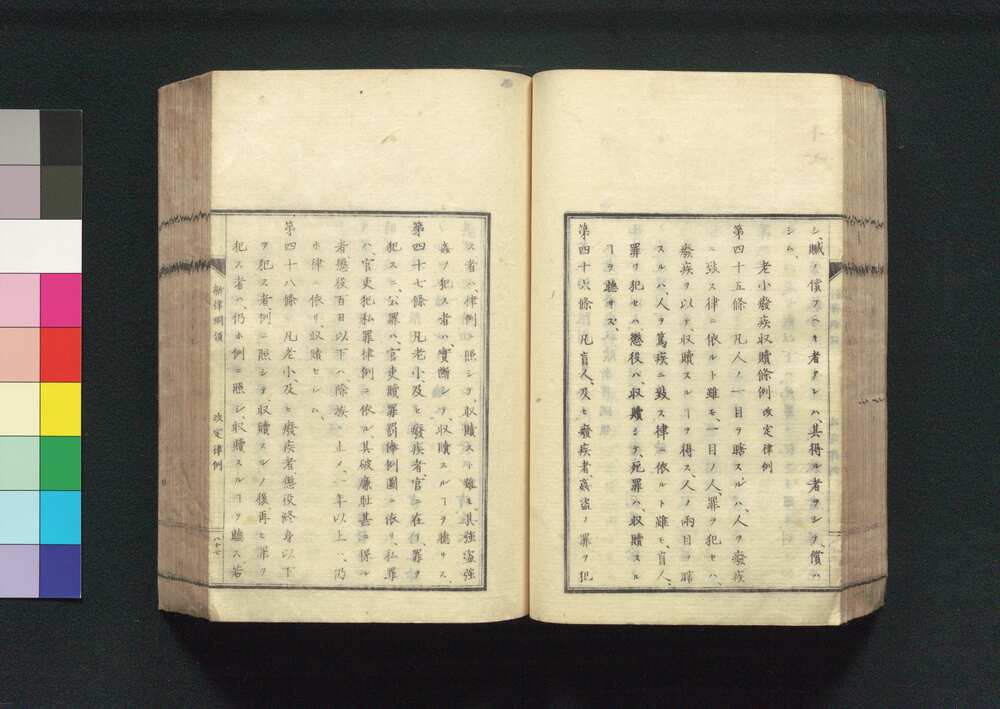 シ、贓ヲ償フヘキ者ナレハ、其得ル者ヲシヲ、償ハ
シム、
老小癈疾収贖條例 改定律例
第四十五條 凡人ノ一目ヲ瞎スルハ、人ヲ癈疾
ニ致ス律ニ依ルト雖モ、一目ノ人罪ヲ犯セハ、
癈疾ヲ以テ、収贖スルヿヲ得ス、人ノ兩目ヲ瞎
スルハ、人ヲ篤疾ニ致ス律ニ依ルト雖モ、盲人、
罪ヲ犯セハ、懲役ハ、収贖シテ、死罪ハ、収贖スル
ヿヲ聴サス、
第四十六條 凡盲人、及ヒ癈疾者、姦盗ノ罪ヲ犯
ス者ハ、律例ニ照シテ、収贖スト雖モ、其強盗強
姦ヲ犯ス者ハ、實断シテ、収贖スルヿヲ聴サス、
第四十七條 凡老小、及ヒ癈疾者、官ニ在テ、罪ヲ
犯スニ、公罪ハ、官吏贖罪罰俸例圖ニ依リ、私罪
ハ、官吏犯私罪律例ニ依ル、其破廉耻甚ニ係ル
者懲役百日以下ハ除族ニ止メ、一年以上ハ、仍
ホ律ニ依リ、収贖セシム、
第四十八條 凡老小、及ヒ癈疾者、懲役終身以下
ヲ犯ス者、例ニ照シテ、収贖スルノ後、再ヒ罪ヲ
犯ス者ハ、仍ホ例ニ照シ、収贖スルヿヲ聴ス、若
新律綱領 改定律例
八十七